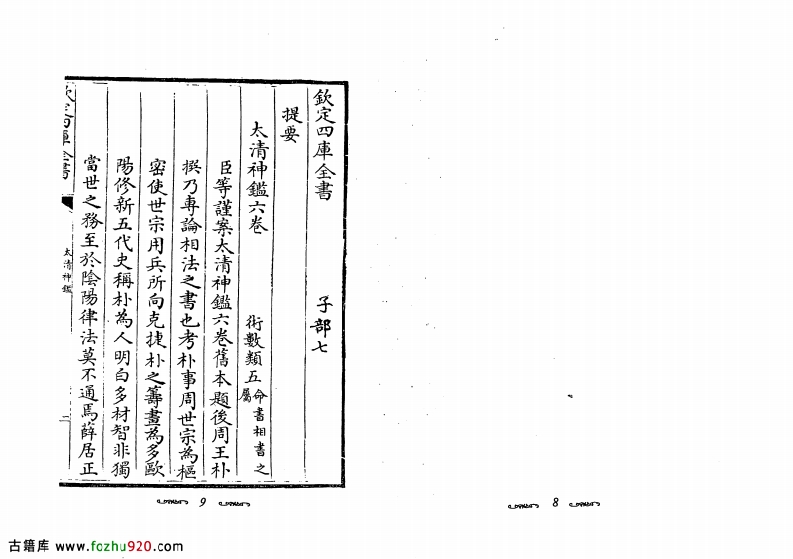 欽定四庫全書　子部七
提要
太清神鑑六卷　術數類五命書相書之屬
臣等謹案太清神鑑六卷舊本題後周王朴
撰乃專論相法之書也考朴事周世宗為樞
密使世宗用兵所向克捷朴之籌畫為多歐
陽修新五代史稱朴為人明白多材智非獨
當世之務至於陰陽律法莫不通焉薛居正
欽定四庫全書
太清神鑑
二
9
8
古籍库 www.fozhu920.com